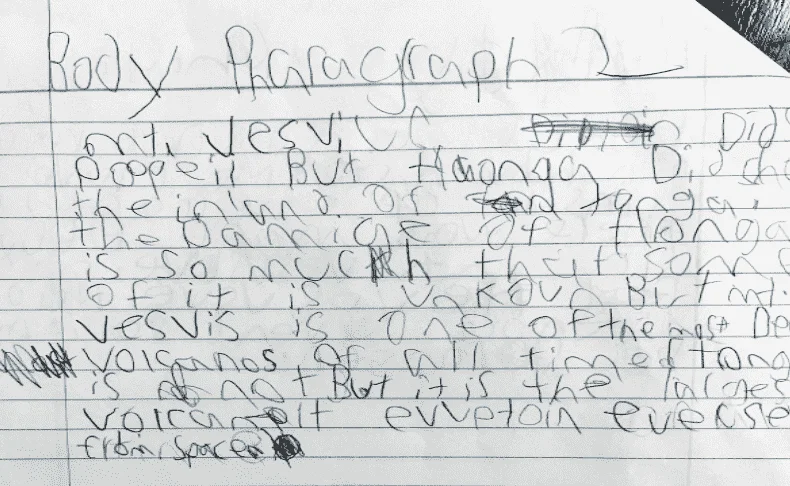 Body Pharagraph 2
mt. Vesviu Did
Popeii But Honga Did sh
the inland. Of tonga.
the Damige of Honga
is so much that som
Of it is unkoun But mt.
Vesvis is one of the most De
volcanos Of all time Tong
is not But it is the larges
volcan evvetoin everse
from space